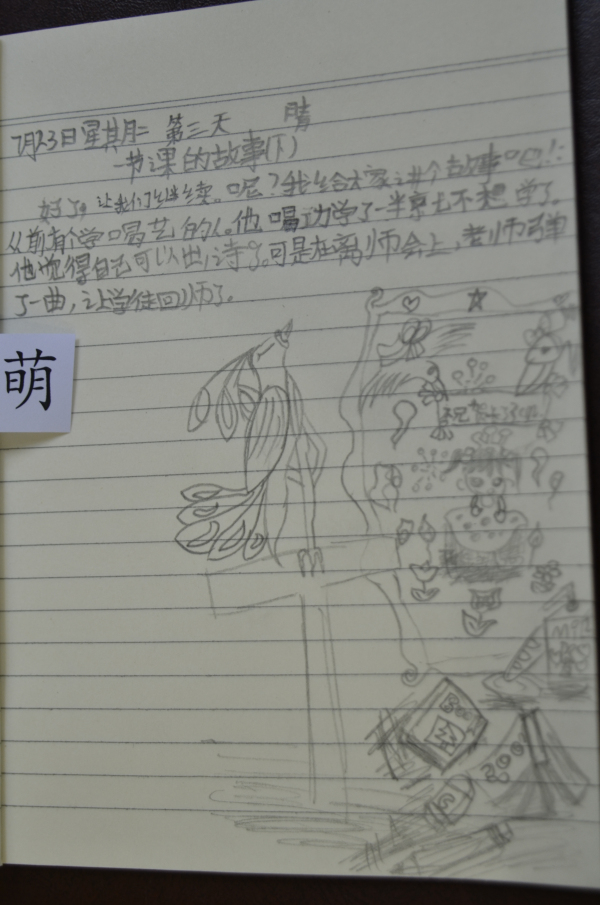 7月23日星期二 第三天 晴
一节课的故事(下)
好了,让我们继续。呢?我给大家讲个故事吧!:
从前有个学唱艺的人。他唱功学了一半就不想学了。
他觉得自己可以出师了。可是在离师会上,老师弹
了一曲,让学徒回师了。
萌